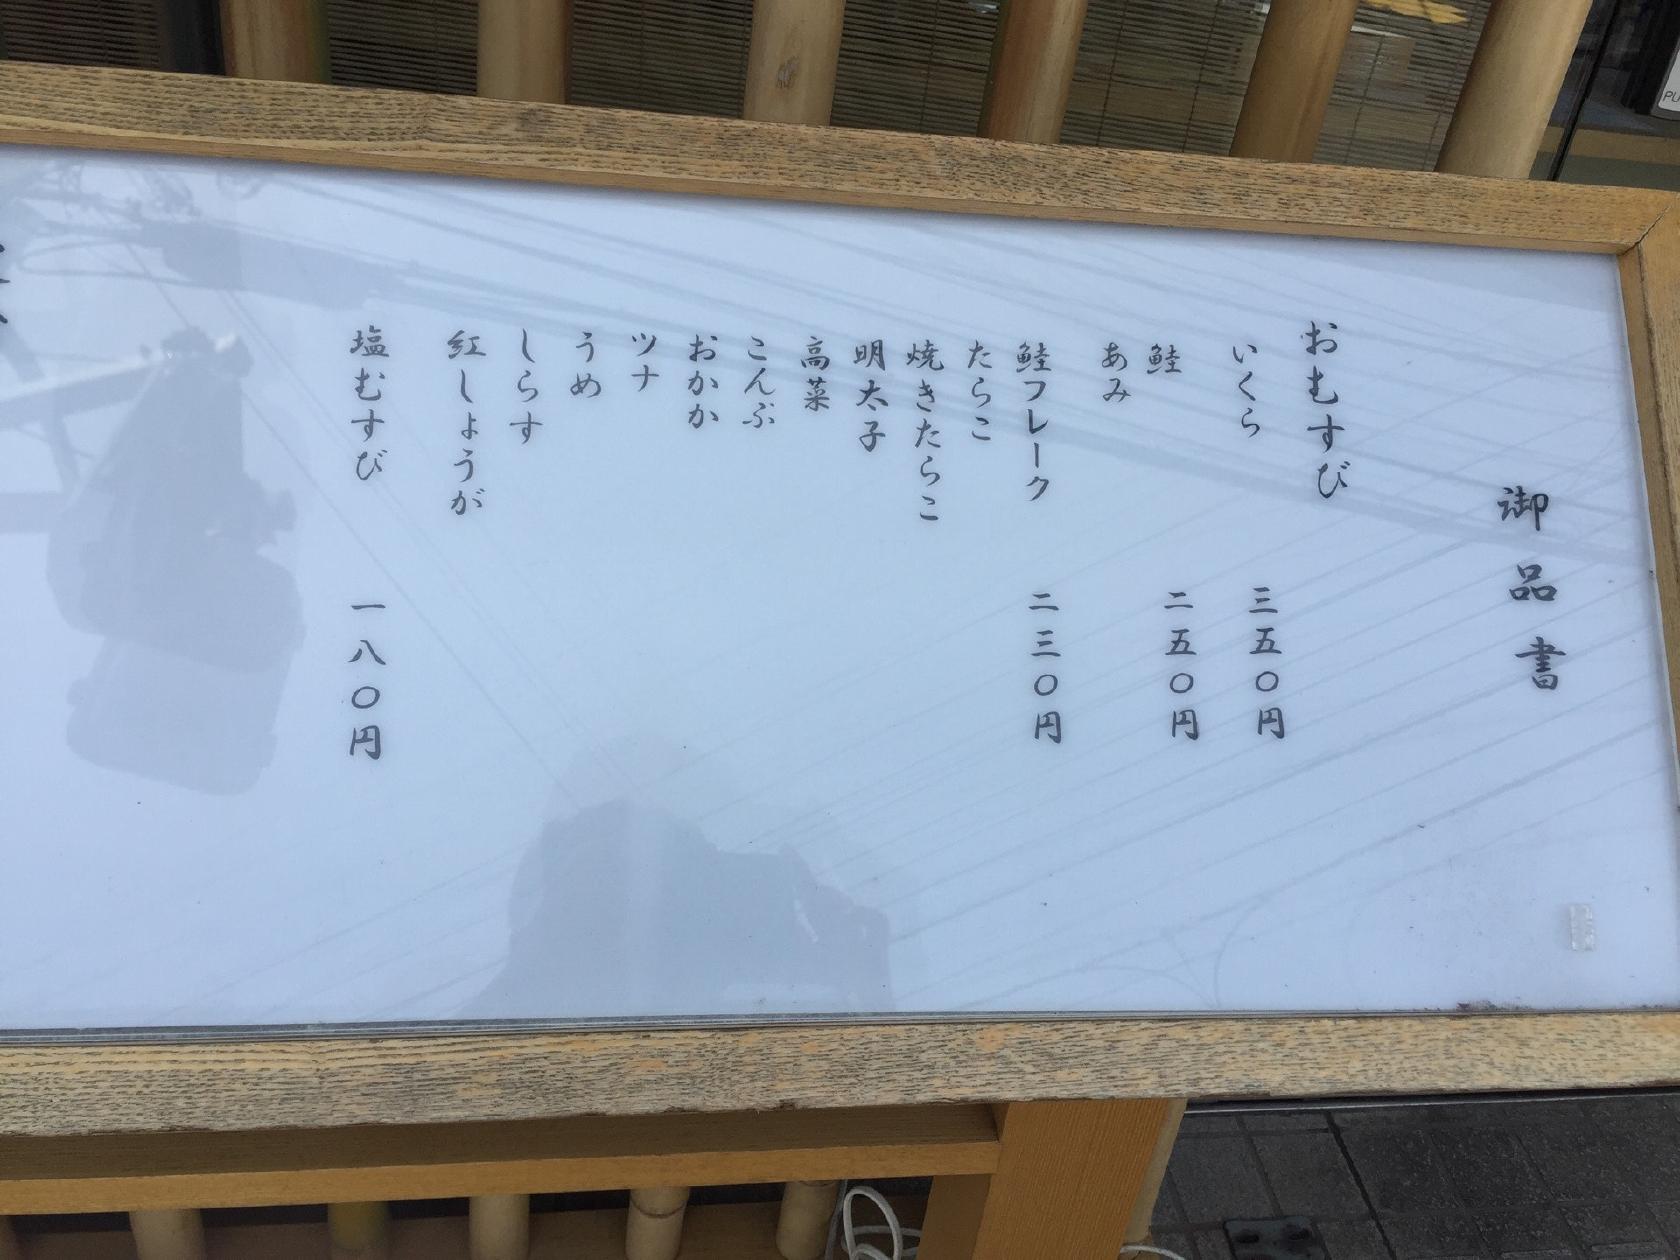 御品書
おむすび
いくら 三五〇円
鮭 二五〇円
あみ
鮭フレーク 二三〇円
たらこ
焼きたらこ
明太子
高菜
こんぶ
おかか
ツナ
うめ
しらす
紅しょうが
塩むすび 一八〇円
PU